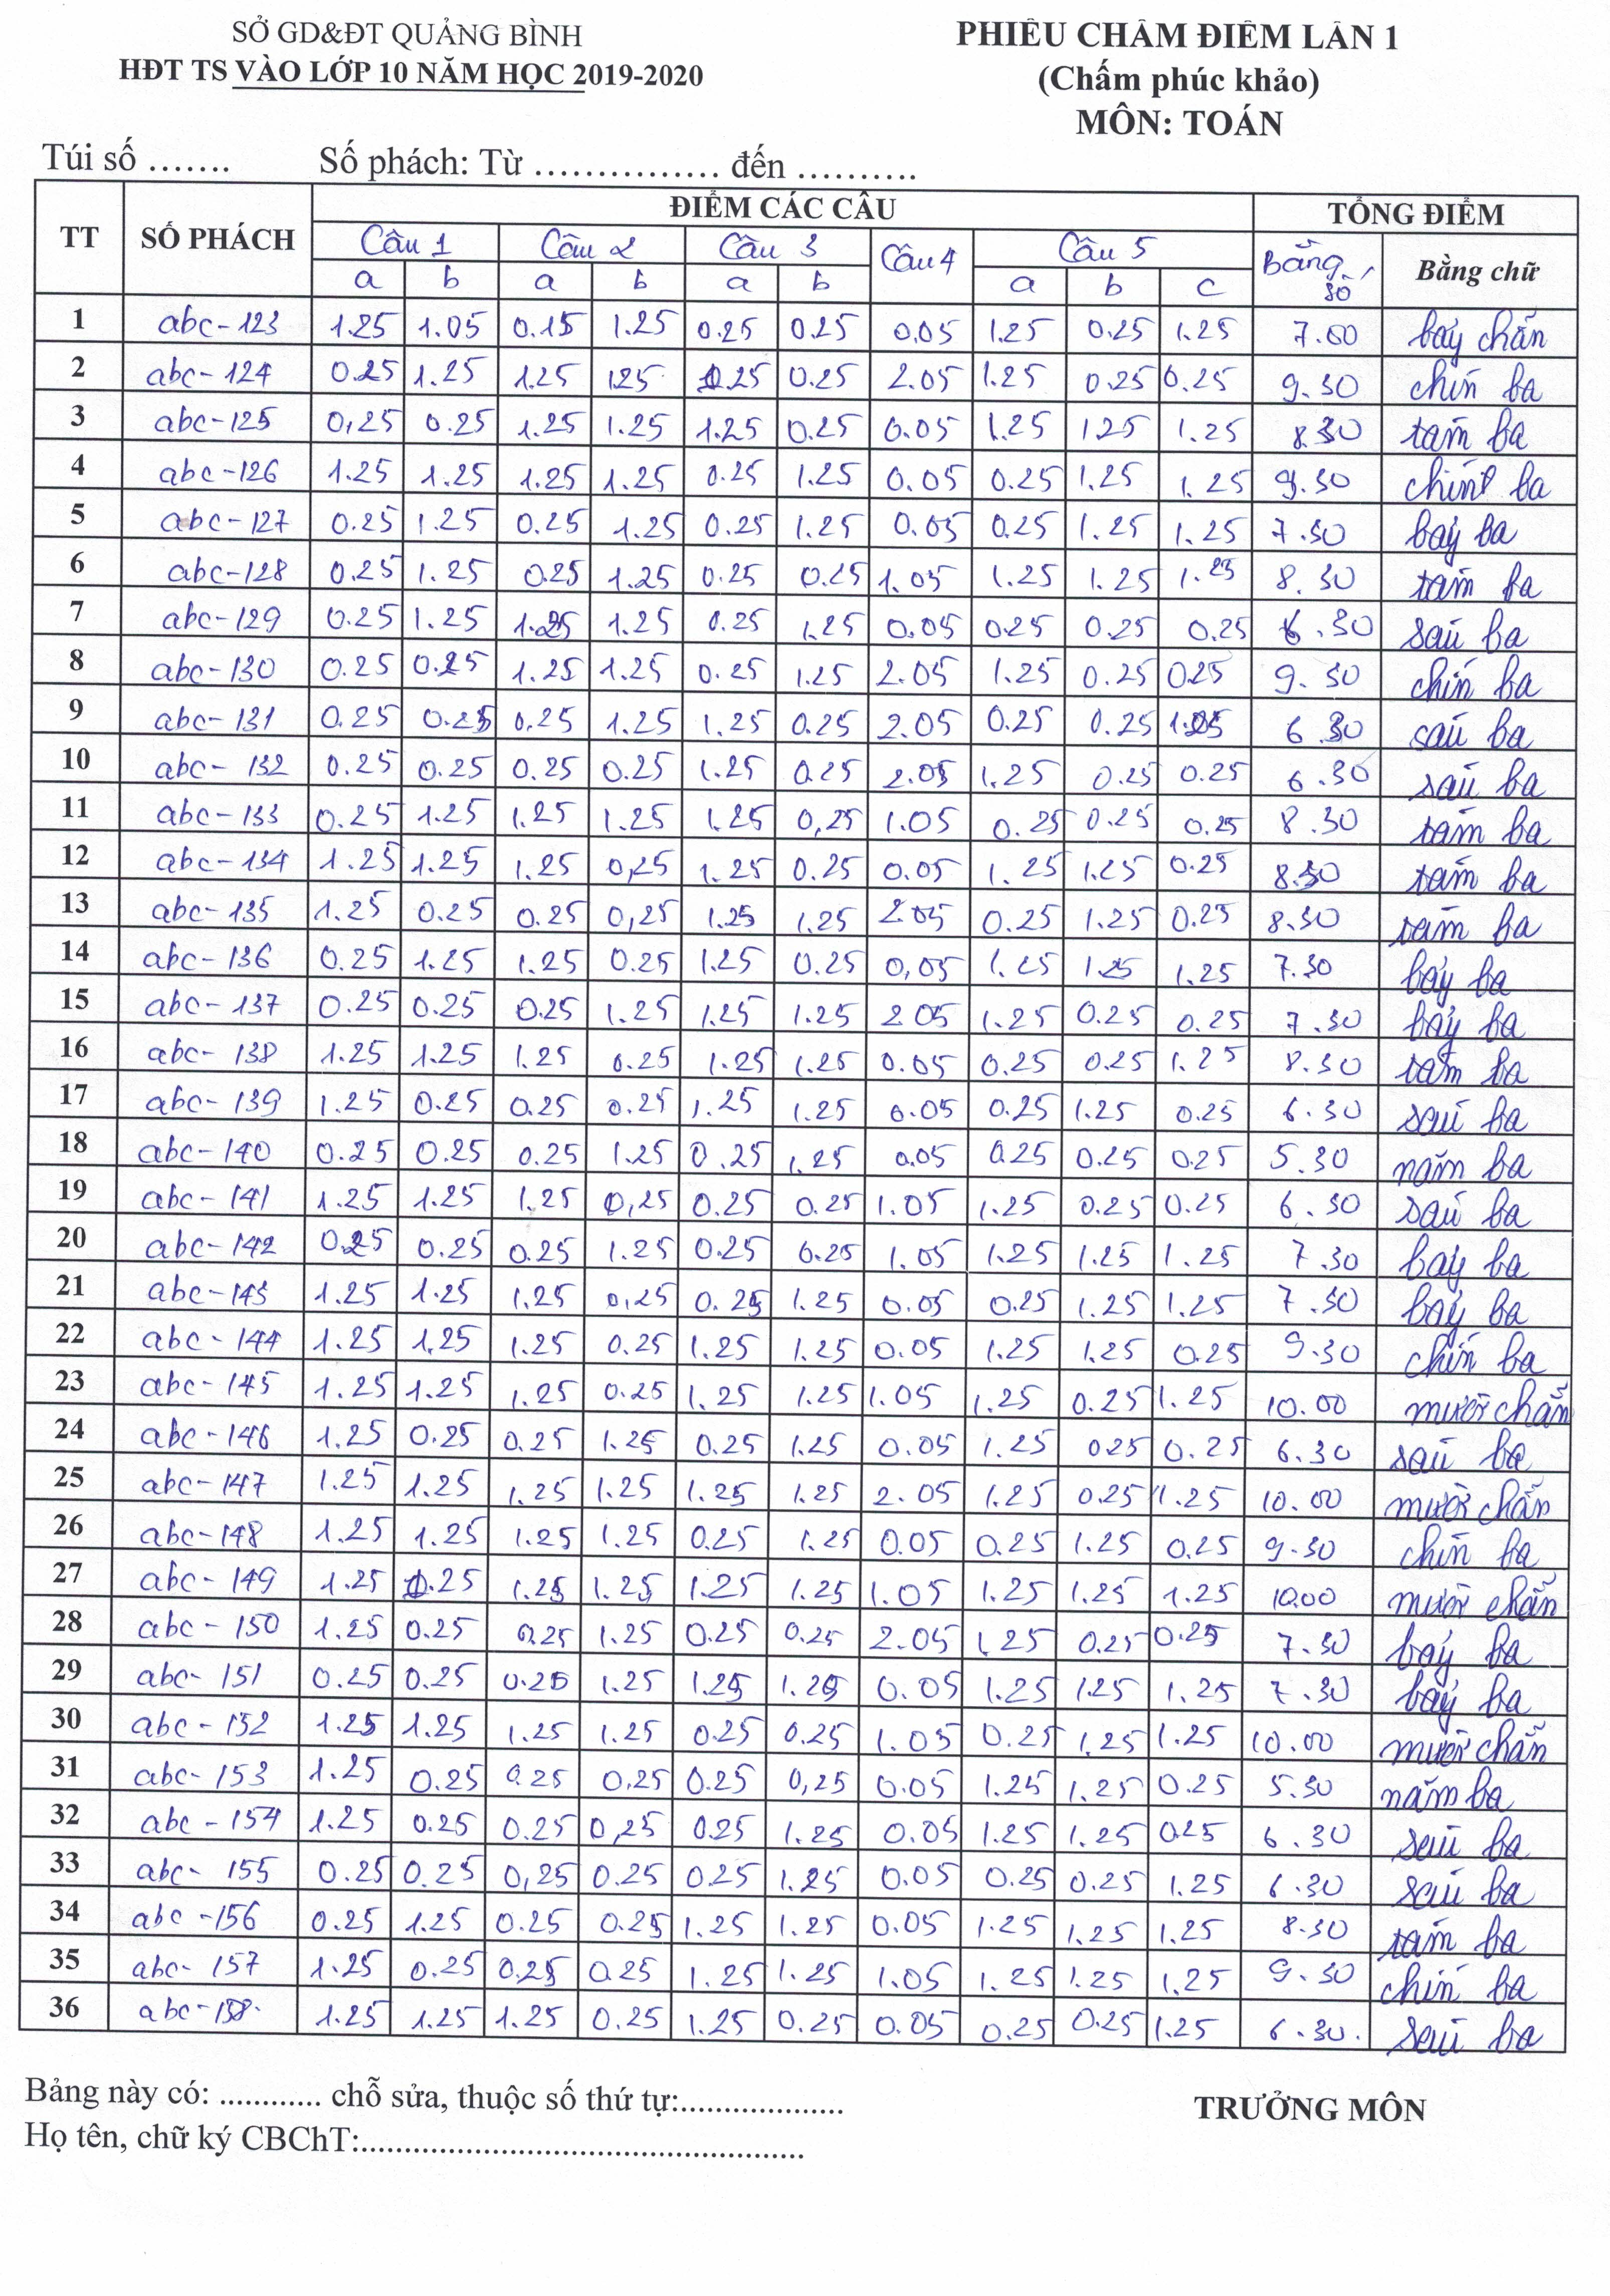 SỞ GD&ĐT QUẢNG BÌNH
HĐT TS VÀO LỚP 10 NĂM HỌC 2019-2020
PHIẾU CHẤM ĐIỂM LẦN 1
(Chấm phúc khảo)
MÔN: TOÁN
Túi số ....... Số phách: Từ ................ đến ..........
TT SỐ PHÁCH ĐIỂM CÁC CÂU TỔNG ĐIỂM
Câu 1 Câu 2 Câu 3 Câu 4 Câu 5 Bằng số Bằng chữ
a b a b a b a b c
1 abc-123 1.25 1.05 0.15 1.25 0.25 0.25 0.05 1.25 0.25 1.25 7.00 bảy chẵn
2 abc-124 0.25 1.25 1.25 125 0.25 0.25 2.05 1.25 0.25 0.25 9.30 chín ba
3 abc-125 0,25 0.25 1.25 1.25 1.25 0.25 0.05 1.25 125 1.25 8.30 tám ba
4 abc-126 1.25 1.25 1.25 1.25 0.25 1.25 0.05 0.25 1.25 1.25 9.30 chín ba
5 abc-127 0.25 1.25 0.25 1.25 0.25 1.25 0.05 0.25 1.25 1.25 7.30 bảy ba
6 abc-128 0.25 1.25 0.25 1.25 0.25 0.25 1.05 1.25 1.25 1.25 8.30 tám ba
7 abc-129 0.25 1.25 1.25 1.25 0.25 1.25 0.05 0.25 0.25 0.25 6.30 sáu ba
8 abc-130 0.25 0.25 1.25 1.25 0.25 1.25 2.05 1.25 0.25 0.25 9.30 chín ba
9 abc-131 0.25 0.25 0.25 1.25 1.25 0.25 2.05 0.25 0.25 6.30 sáu ba
10 abc-132 0.25 0.25 0.25 0.25 1.25 0.25 2.05 1.25 0.25 0.25 6.30 sáu ba
11 abc-133 0.25 1.25 1.25 1.25 1.25 0,25 1.05 0.25 0.25 0.25 8.30 tám ba
12 abc-134 1.25 1.25 1.25 0,25 1.25 0.25 0.05 1.25 1.25 0.25 8.30 tám ba
13 abc-135 1.25 0.25 0.25 0,25 1.25 1.25 2.05 0.25 1.25 0.25 8.30 tám ba
14 abc-136 0.25 1.25 1.25 0.25 1.25 0.25 0,05 1.25 1.25 1.25 7.30 bảy ba
15 abc-137 0.25 0.25 0.25 1.25 1.25 1.25 2.05 1.25 0.25 0.25 7.30 bảy ba
16 abc-138 1.25 1.25 1.25 0.25 1.25 1.25 0.05 0.25 0.25 1.25 8.30 tám ba
17 abc-139 1.25 0.25 0.25 0.25 1.25 1.25 0.05 0.25 1.25 0.25 6.30 sáu ba
18 abc-140 0.25 0.25 0.25 1.25 0.25 1.25 0.05 0.25 0.25 0.25 5.30 năm ba
19 abc-141 1.25 1.25 1.25 0,25 0.25 0.25 1.05 1.25 0.25 0.25 6.30 sáu ba
20 abc-142 0.25 0.25 0.25 1.25 0.25 0.25 1.05 1.25 1.25 1.25 7.30 bảy ba
21 abc-143 1.25 1.25 1.25 0,25 0.25 1.25 0.05 0.25 1.25 1.25 7.30 bảy ba
22 abc-144 1.25 1.25 1.25 0.25 1.25 1.25 0.05 1.25 1.25 0.25 9.30 chín ba
23 abc-145 1.25 1.25 1.25 0.25 1.25 1.25 1.05 1.25 0.25 1.25 10.00 mười chẵn
24 abc-146 1.25 0.25 0.25 1.25 0.25 1.25 0.05 1.25 025 0.25 6.30 sáu ba
25 abc-147 1.25 1.25 1.25 1.25 1.25 1.25 2.05 1.25 0.25 1.25 10.00 mười chẵn
26 abc-148 1.25 1.25 1.25 1.25 0.25 1.25 0.05 0.25 1.25 0.25 9.30 chín ba
27 abc-149 1.25 0.25 1.25 1.25 1.25 1.25 1.05 1.25 1.25 1.25 10.00 mười chẵn
28 abc-150 1.25 0.25 0.25 1.25 0.25 0.25 2.05 1.25 0.25 0.25 7.30 bảy ba
29 abc-151 0.25 0.25 0.25 1.25 1.25 1.25 0.05 1.25 1.25 1.25 7.30 bảy ba
30 abc-152 1.25 1.25 1.25 1.25 0.25 0.25 1.05 0.25 1.25 1.25 10.00 mười chẵn
31 abc-153 1.25 0.25 0.25 0,25 0.25 0,25 0.05 1.25 1.25 0.25 5.30 năm ba
32 abc-154 1.25 0.25 0.25 0,25 0.25 1.25 0.05 1.25 1.25 0.25 6.30 sáu ba
33 abc-155 0.25 0.25 0,25 0.25 0.25 1.25 0.05 0.25 0.25 1.25 6.30 sáu ba
34 abc-156 0.25 1.25 0.25 0.25 1.25 1.25 0.05 1.25 1.25 1.25 8.30 tám ba
35 abc-157 1.25 0.25 0.25 0.25 1.25 1.25 1.05 1.25 1.25 1.25 9.30 chín ba
36 abc-158 1.25 1.25 1.25 0.25 1.25 0.25 0.05 0.25 0.25 1.25 6.30. sáu ba
Bảng này có: ............ chỗ sửa, thuộc số thứ tự:...................
TRƯỞNG MÔN
Họ tên, chữ ký CBChT:...................................................